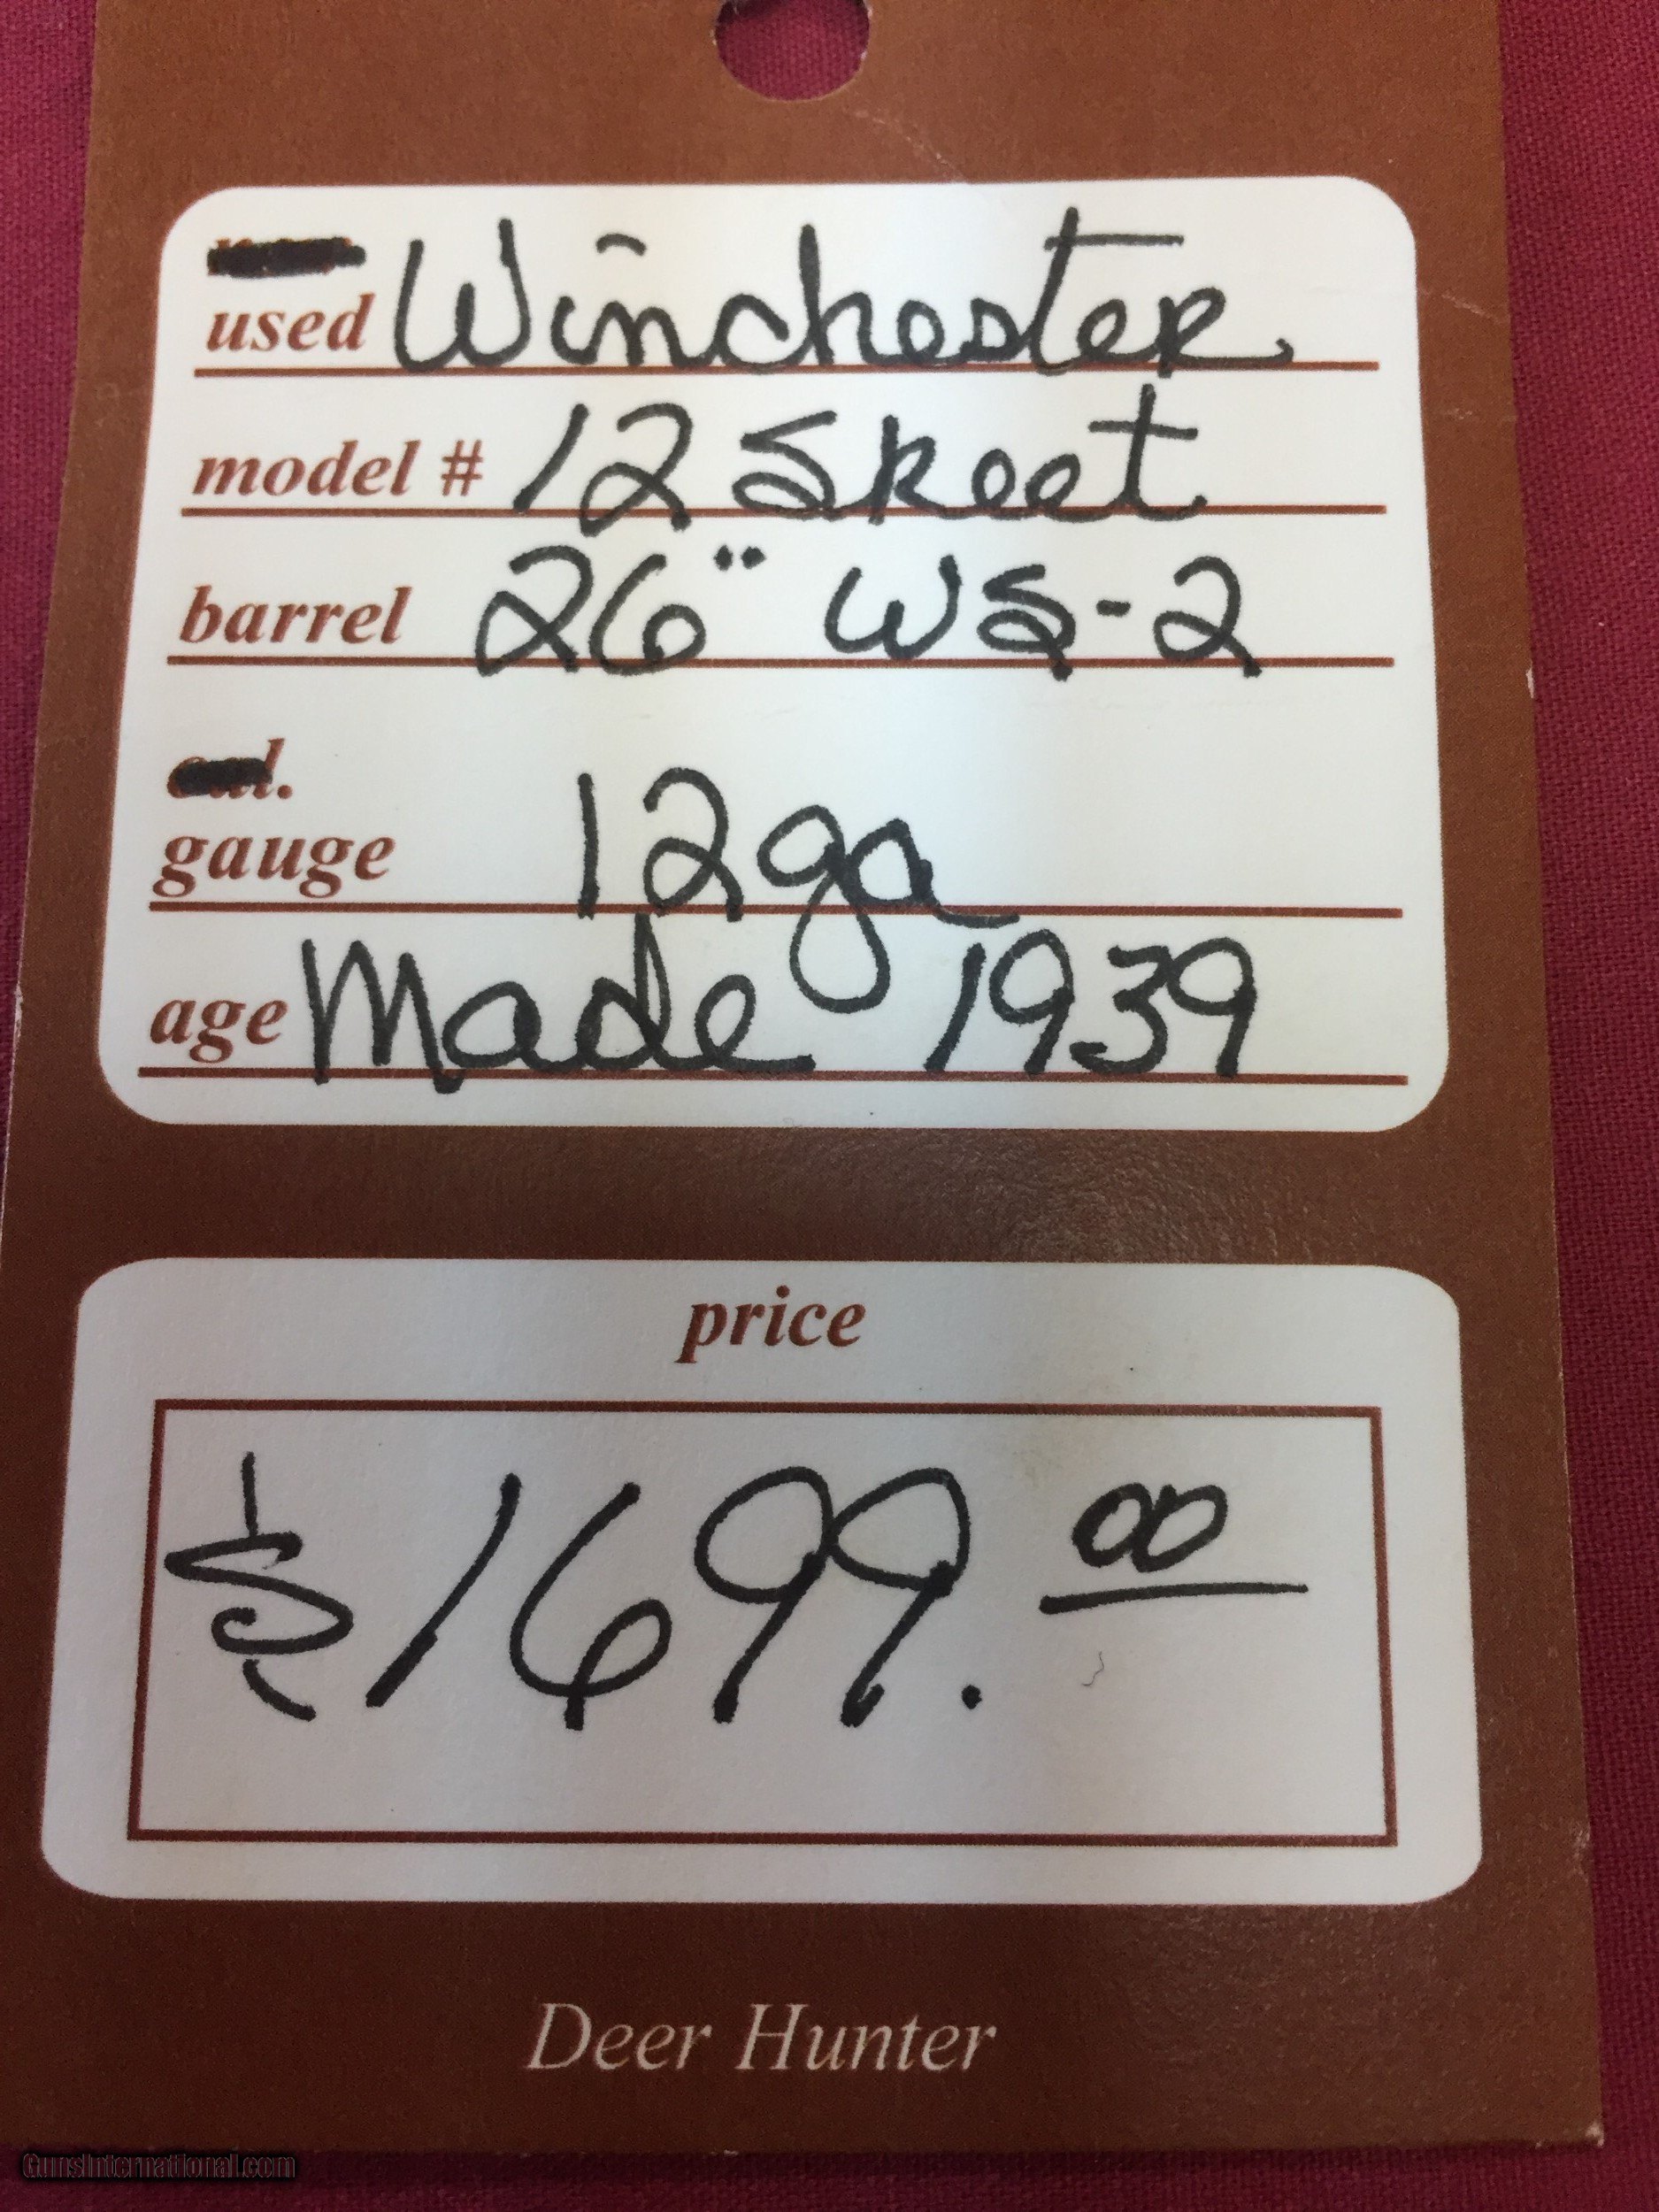 used Winchester
model # 12 Skeet
barrel 26" WS-2
gauge 12ga
age Made 1939
price
$1699.00
Deer Hunter
GunsInternational.com